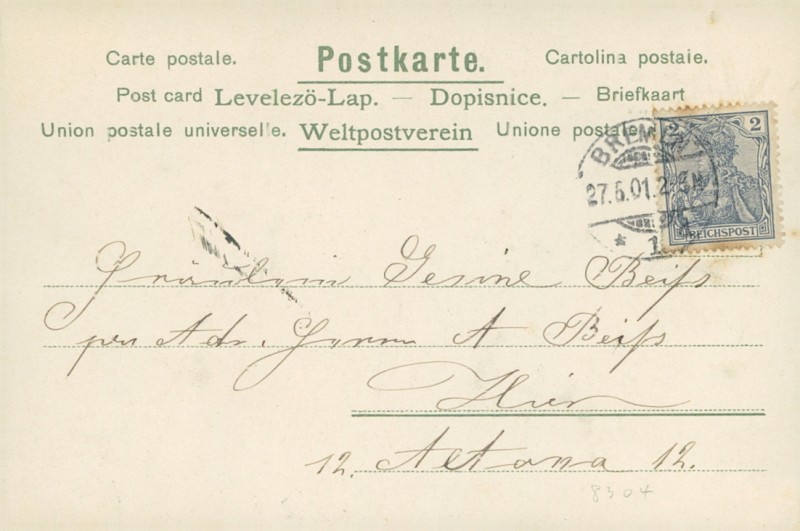 Carte postale. Postkarte. Cartolina postale.
Post card Levelezö-Lap. — Dopisnice. — Briefkaart
Union postale universelle. Weltpostverein Unione postale
2 2
REICHSPOST
BREMEN
27.5.01.2-3N
* 1
Fräulein Gesine Beiß
per Adr. Herrn A Beiß
Hier
12. Altona 12.
8304